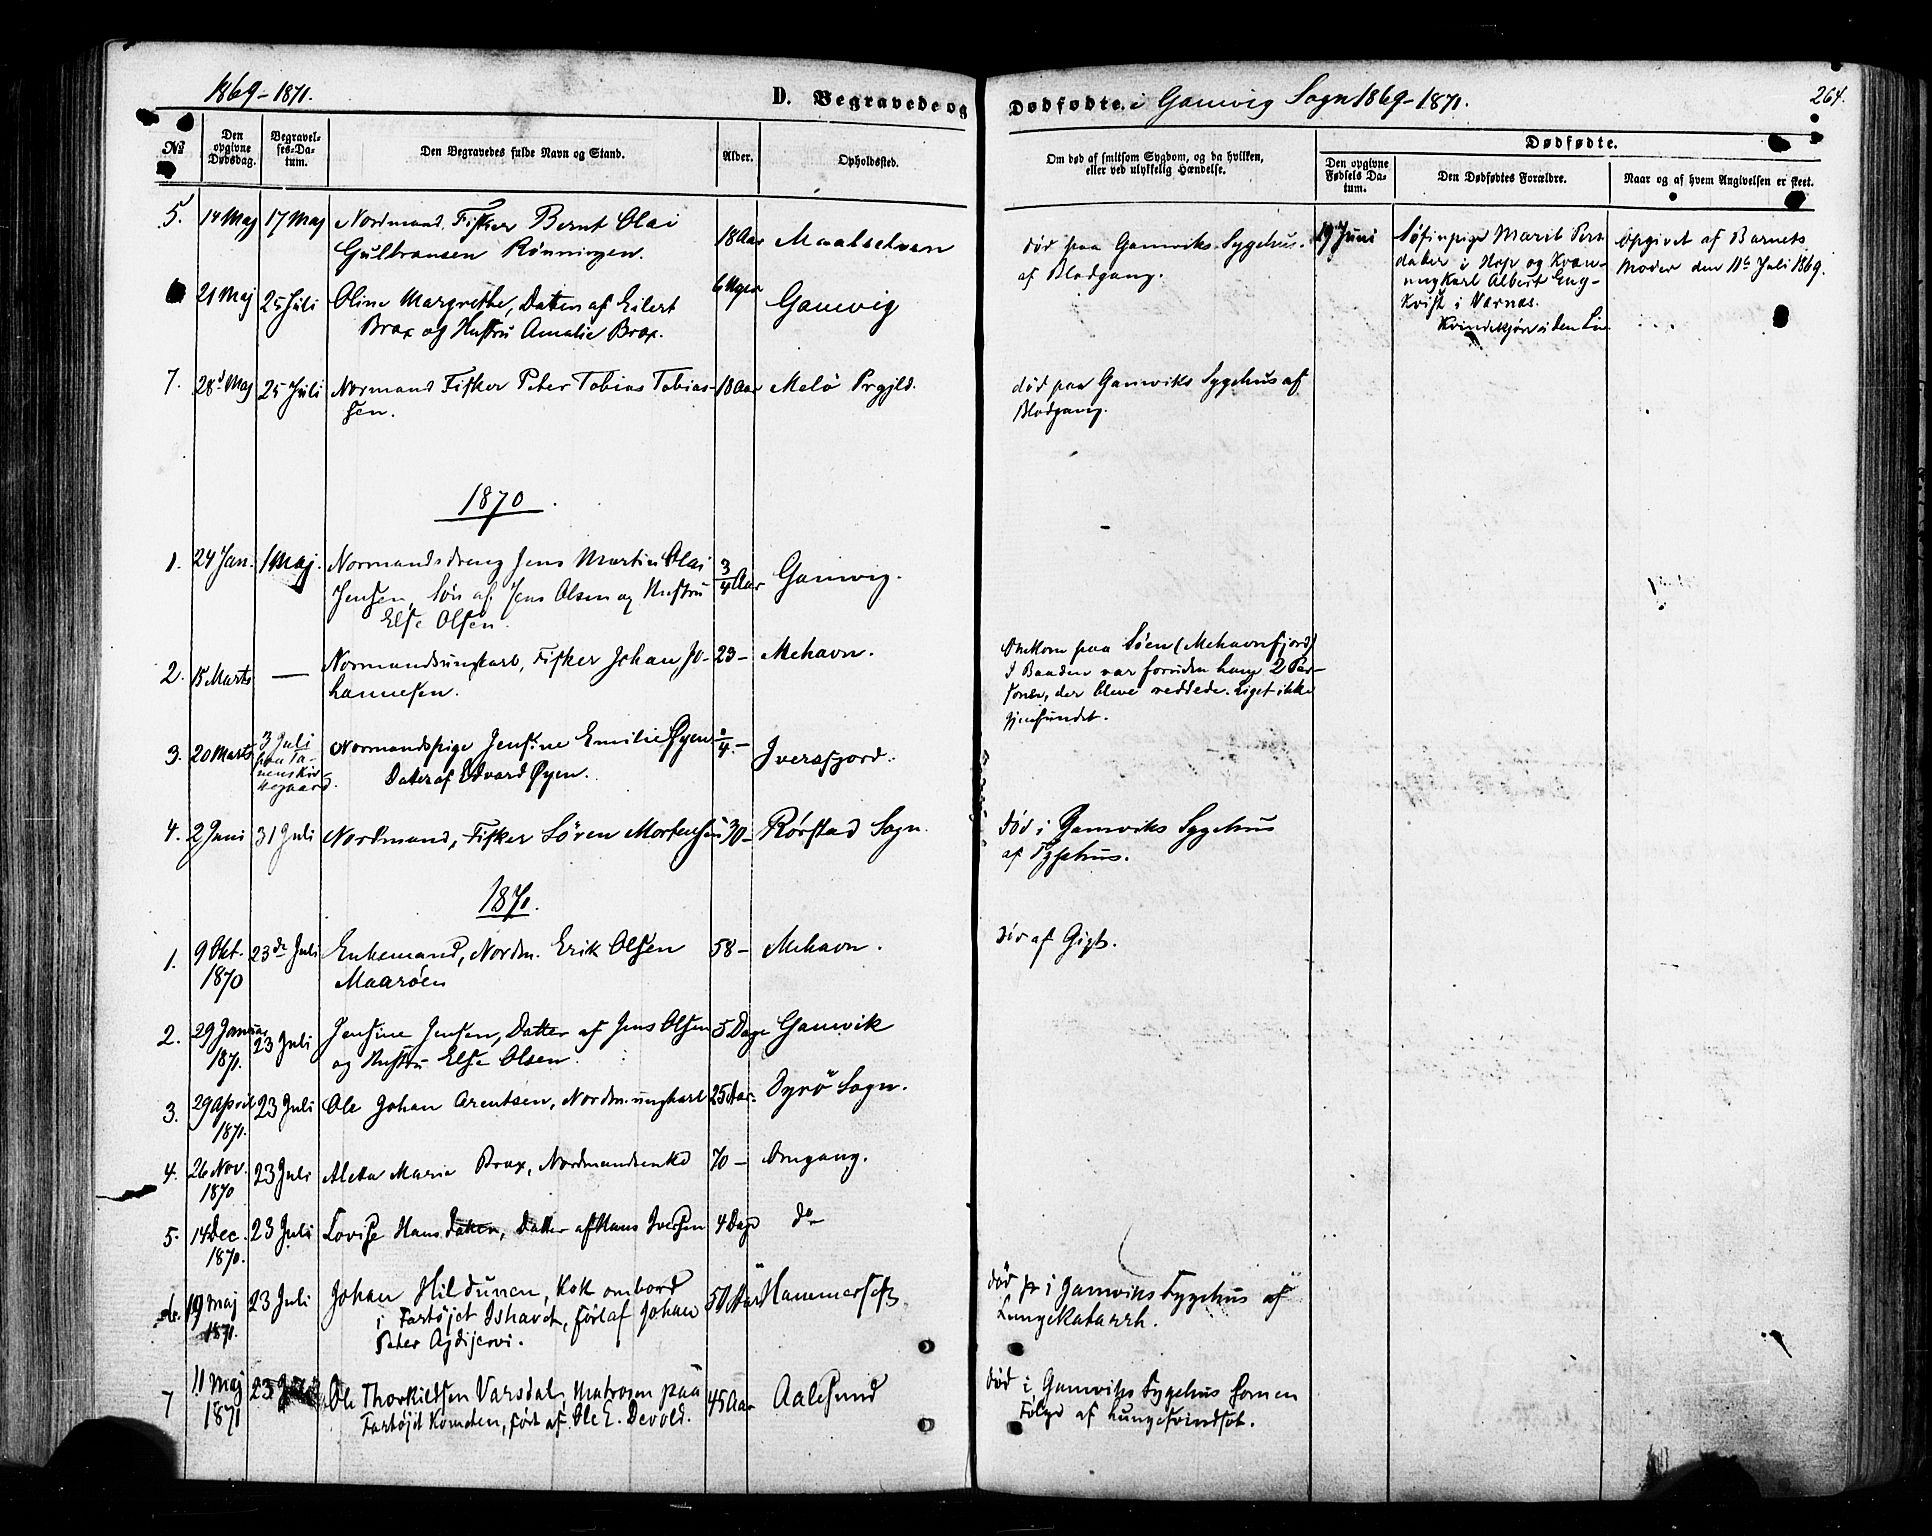 1869-1871.
D. Begravede og
Dødfødte. i Gamvig Sogn 1869-1871.
264.
No
Den opgivne Dødsdag.
Begravelses-Datum.
Den Begravedes fulde Navn og Stand.
Alder.
Opholdssted.
Om død af smitsom Sygdom, og da hvilken, eller ved ulykkelig Hændelse.
Dødfødte.
Den opgivne Fødsels Datum.
Den Dødfødtes Forældre.
Naar og af hvem Angivelsen er skeet.
5. 14 Maj 17 Maj Nordmand, Fisker Bernt Olai
Gulbransen Rønningen. 18 Aar Maalselven
død paa Gamviks Sygehus.
af Blodgang.
19 Juni
i Næp og Kvæn-
ungkarl Albert Eng-
kvist i Værnæs.
Opgivet af Barnets
Moder den 11te Juli 1869.
21 Maj 25 Juli Oline Margrethe, Datter af Eilert
Brax og Hustru Amalie Brax. Gamvig
7. 28d Maj 25 Juli Normand Fisker Peter Tobias Tobias-
sen. 18 Aar Melö Prgjld.
død paa Gamviks Sygehus af
Blodgang.
1870.
1. 24 Jan. 1 Maj. Normandsdreng Jens Martin Olai
Jensen, Søn af Jens Olsen og Hustru
Else Olsen. 3/4 Aar Gamvig.
2. 15 Marts — Normandsungkarl, Fisker Johan Jo-
hannesen. 23 - Mehavn.
Omkom paa Søen (Mehavnfjord)
I Baaden var foruden ham 2 Per-
soner, der bleve reddede. Liget ikke
gjenfundet.
3. 20 Marts 3 Juli
paa Ta-
nens Kir-
kegaard.
Normandspige Jensine Emilie Øyen
Datter af Edvard Øyen. Iversfjord.
4. 2 Juni 31 Juli Nordmand, Fisker Sören Mortensen 30 - Rörstad Sogn.
død i Gamviks Sygehus
af Typhus.
1871.
1. 9 Okt.
1870 23de Juli Enkemand, Nordm. Erik Olsen
Maarøen 58 - Mehavn.
død af Gigt.
2. 29 Januar
1871. 23 Juli Jensine Jensen, Datter af Jens Olsen
og Hustru Else Olsen. 5 Dage Gamvik
3. 29 April
1871. 23 Juli Ole Johan Arentsen, Nordm. ungkarl 25 Aar. Dyrö Sogn.
4. 26 Nov.
1870 23 Juli Aleta Maria Brax, Nordmandsenke 70 - Omgang.
5. 14 Dec.
1870. 23 Juli Lovise Hansdatter, Datter af Hans Iversen 4 Dage do
6. 19 Maj
1871. 23 Juli Johan Hildunen, Kok ombord
i Fartøjet Ishavet, ført af Johan
Peter Ajdijervi. Hammerfest
død i Gamviks Sygehus af
Lungekatarrh.
7 11 Maj
1871 23 Juli Ole Thorkildsen Varsdal, Matrosen paa
Fartøjet Kometen, ført af Ole E. Devold. 45 Aar Aalesund
død i Gamviks Sygehus som en
Følge af Lungesvindsot.